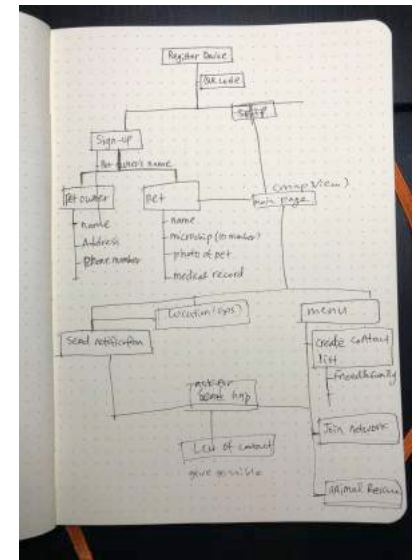 Register Device
QR code
Sign-up
Pet owner's name
Pet owner
Pet
name
Address
Phone number
name
microchip (ID number)
photo of pet
medical record
(map view)
main page
Location (GPS)
Send notification
menu
create contact
list
Friend&family
ask for
help
Join network
List of contact
possible
animal Rescue